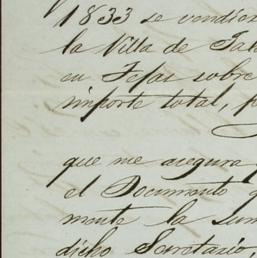 1833 se vendier
la Villa de
en Tejas sobre
importe total, p
que me asegura
el Documento q
mente la Sum
dicho Secretario,